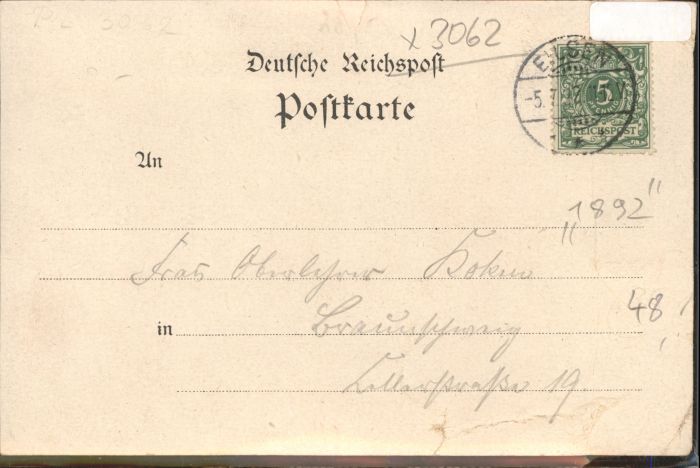 PL 3062
x 3062
Deutsche Reichspost
Postkarte
EILSEN
-5.7. 7 V
5
REICHSPOST
An
"1892"
Frau Oberlehrer Koken
48
in Braunschweig
Cellerstraße 19.